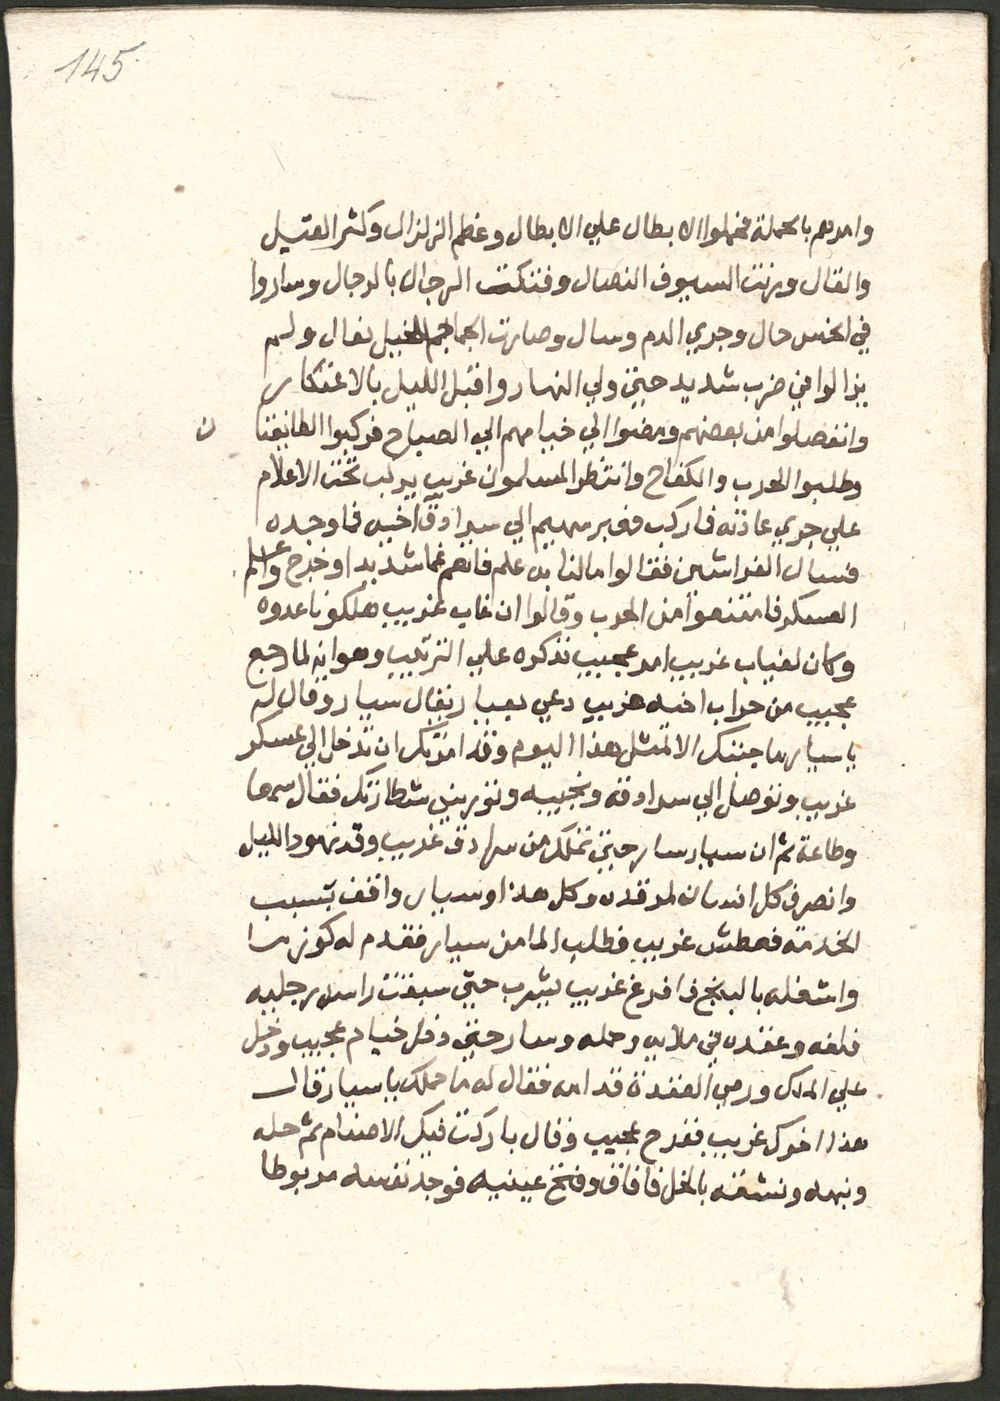 145
وامرهم بالحملة فحملوا الابطال علي الابطال وعظم الزلزال وكثر القتيل
والقال وبرزت السيوف النصال وفتكت الرجال بالرجال وساروا
في انحس حال وجري الدم وسال وصارت الجماجم للخيل نعال ولم
يزالوا في ضرب شديد حتي ولي النهار واقبل الليل بالاعتكار
وانفصلوا من بعضهم ومضوا الي خيامهم الي الصباح فركبوا الطايفتا ن
وطلبوا الحرب والكفاح وانتظر المسلمون غريب يركب تحت الاعلام
علي جري عادته فما ركب فهم الي سرادق اخيه فما وجده
فسال الفراشين فقالوا ما لنا به علم فانغم غما شديدا وخرج واعلم
العسكر فامتنعوا من الحرب وقالوا ان غاب غريب هلكونا عدوه
وكان لغياب غريب امر عجيب نذكره علي الترتيب وهو انه لما رجع
عجيب من حراب اخيه غريب دعي بعيار يقال سيار وقال له
يا سيار ما جيتك الا لمثل هذا اليوم وقد امرتك ان تدخل الي عسكر
غريب وتوصل الي سرادقه وتجيبه وتوريني شطارتك فقال سمعا
وطاعة ثم ان سيار سار حتي تملك من سرادق غريب وقد تهود الليل
وانصرف كل انسان لمرقده وكل هذا وسيار واقف بسبب
الخدمة فعطش غريب فطلب الما من سيار فقدم له كوز ما
واشغله بالبنج فما فرغ غريب يشرب حتي سبقت راسه رجليه
فلفه وعقده في ملايه وحمله وسار حتي دخل خيام عجيب ودخل
علي الملك ورمي العقدة قدامه فقال له ما حملك يا سيار قال
هذا اخوك غريب ففرح عجيب وقال باركت فيك الاصنام ثم حله
ونبهه ونشقه بالخل فافاق وفتح عينيه فوجد نفسه مربوطا